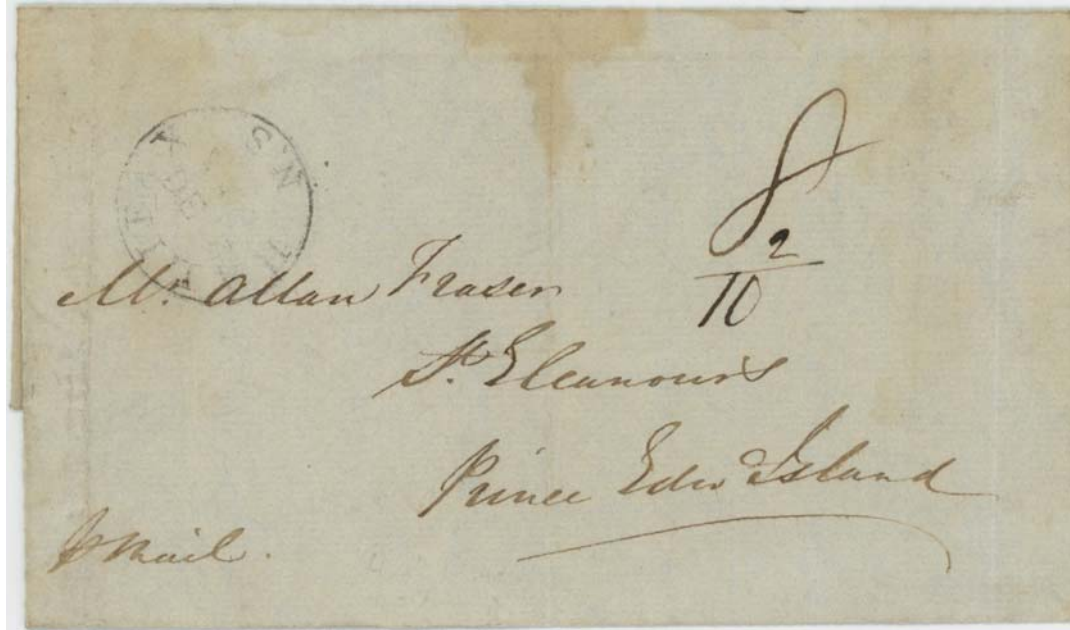 HALIFAX N.S
DE
8
2
10
Mr. Allan Fraser
St. Eleanours
Prince Edw Island
p Mail.